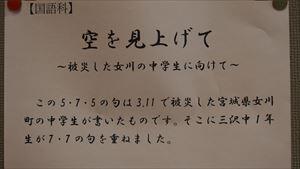 【国語科】
空を見上げて
～被災した女川の中学生に向けて～
この5・7・5の句は3.11で被災した宮城県女川
町の中学生が書いたものです。そこに三沢中1年
生が7・7の句を重ねました。